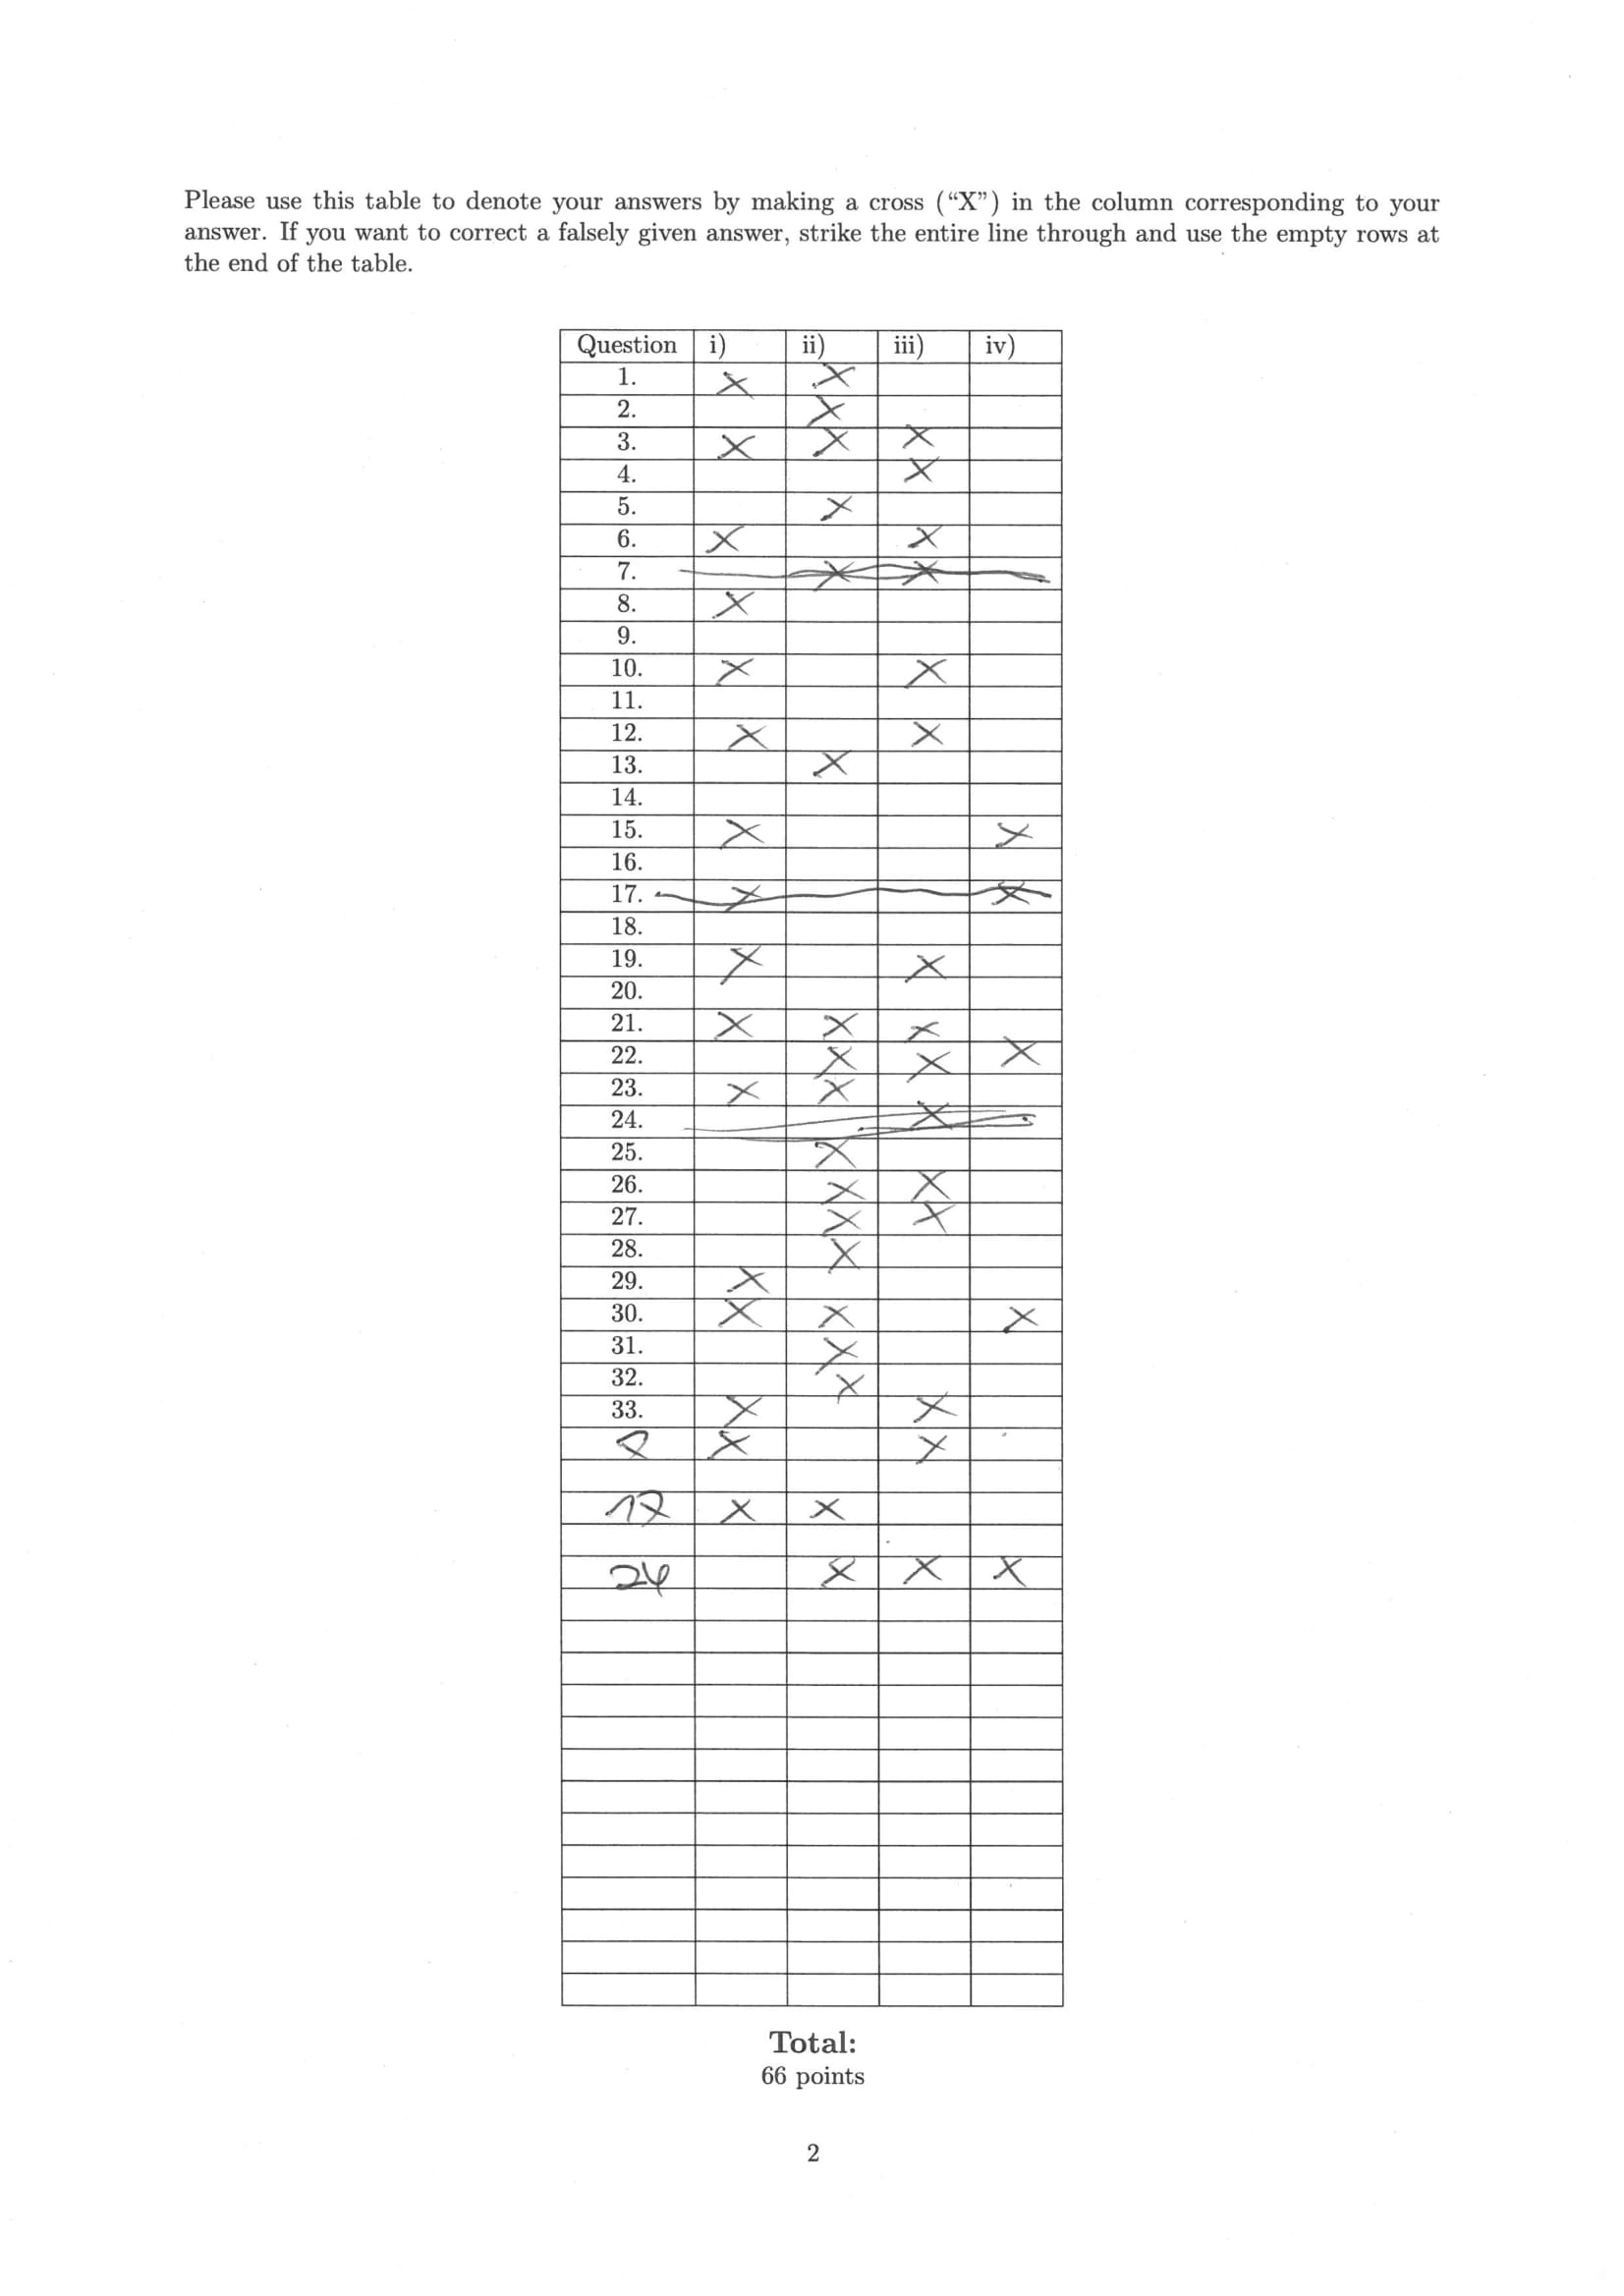 Please use this table to denote your answers by making a cross (“X”) in the column corresponding to your
answer. If you want to correct a falsely given answer, strike the entire line through and use the empty rows at
the end of the table.
Question i) ii) iii) iv)
1. X X
2. X
3. X X X
4. X
5. X
6. X X
7. X X
8. X
9.
10. X X
11.
12. X X
13. X
14.
15. X X
16.
17. X X
18.
19. X X
20.
21. X X X
22. X X X
23. X X
24. X
25. X
26. X X
27. X X
28. X
29. X
30. X X X
31. X
32. X
33. X X
7 X X
17 X X
24 X X X
Total:
66 points
2